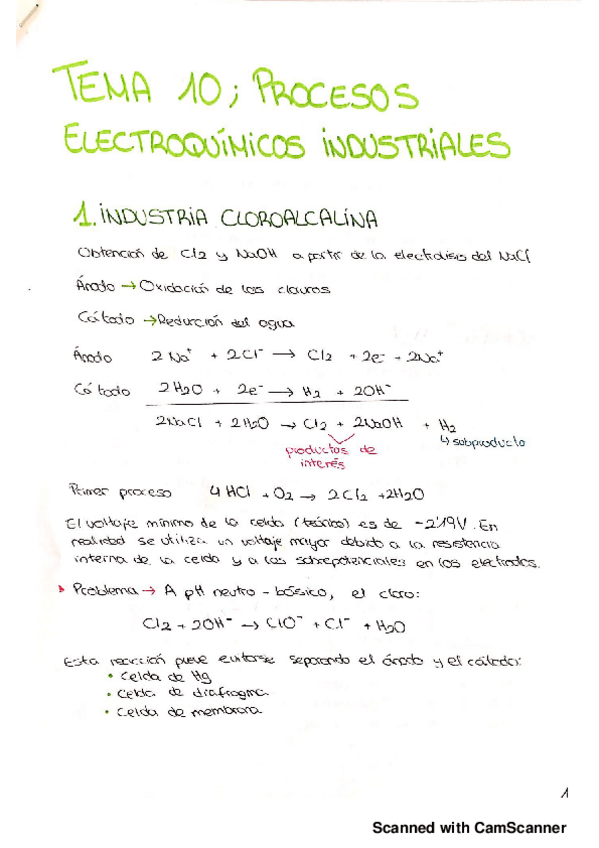 TEMA 10; PROCESOS
ELECTROQUÍMICOS INDUSTRIALES
1. INDUSTRIA CLOROALCALINA
Obtención de Cl2 y NaOH a partir de la electrolisis del NaCl
Ánodo → Oxidación de los cloruros
Cátodo → Reducción del agua
Ánodo 2Na⁺ + 2Cl⁻ → Cl2 + 2e⁻ + 2Na⁺
Cátodo 2H2O + 2e⁻ → H2 + 2OH⁻
2NaCl + 2H2O → Cl2 + 2NaOH + H2
productos de
interés
↳ subproducto
Primer proceso 4HCl + O2 → 2Cl2 + 2H2O
El voltaje mínimo de la celda (teórico) es de -2'19V. En
realidad se utiliza un voltaje mayor debido a la resistencia
interna de la celda y a los sobrepotenciales en los electrodos.
Problema → A pH neutro - básico, el cloro:
Cl2 + 2OH⁻ → ClO⁻ + Cl⁻ + H2O
Esta reacción puede evitarse separando el ánodo y el cátodo:
• Celda de Hg
• Celda de diafragma
• Celda de membrana
1
Scanned with CamScanner